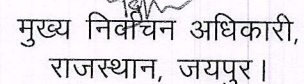 मुख्य निर्वाचन अधिकारी,
राजस्थान, जयपुर।